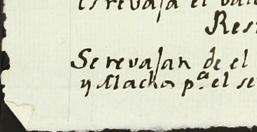 es revaja el vale
Res
Se revajan de el
y Macho pª. el se